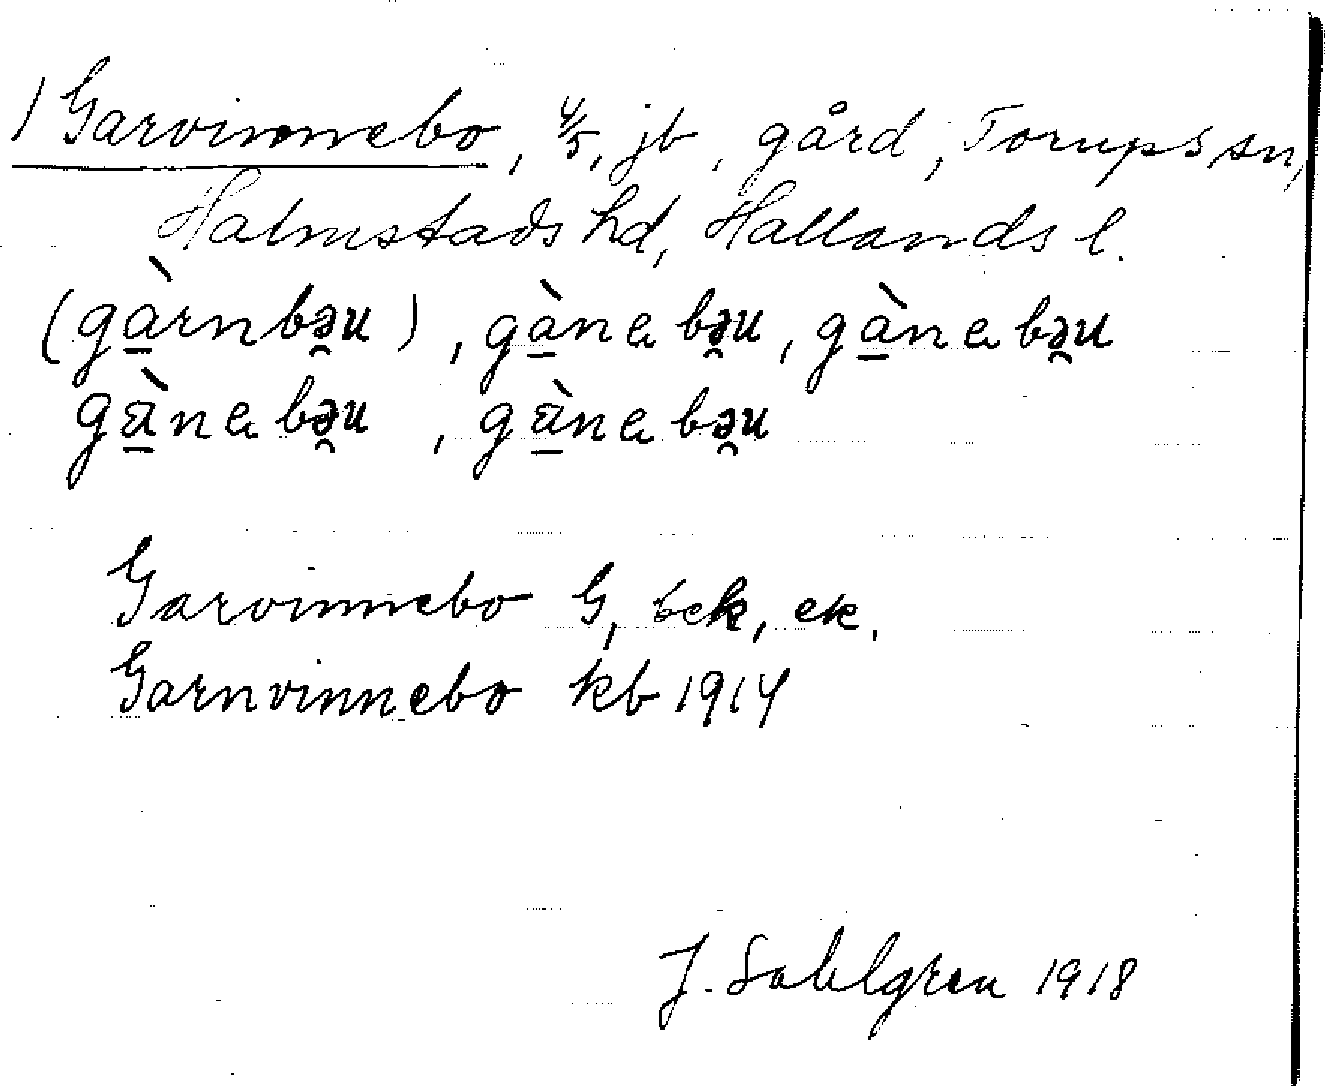 1 Garvinnebo, 4/5, jb, gård, Torups sn,
Halmstads hd, Hallands l.
(gàrnbə̯u), gànebə̯u, gànebə̯u
gànebə̯u, gànebə̯u
Garvinnebo G, bek, ek.
Garnvinnebo kb 1914
J. Sahlgren 1918